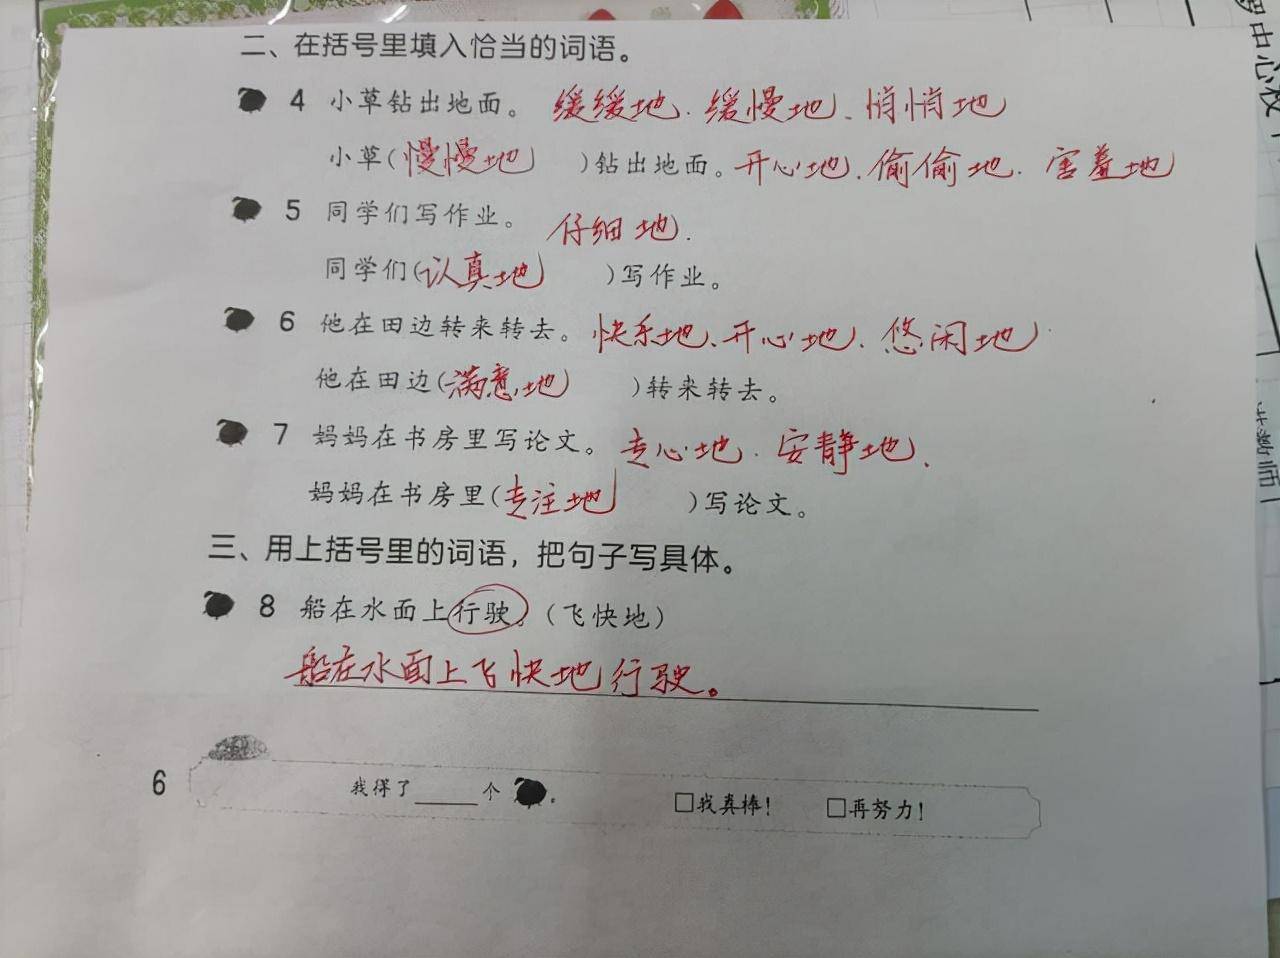 二、在括号里填入恰当的词语。
4 小草钻出地面。 缓缓地、缓慢地、悄悄地
小草(慢慢地 )钻出地面。开心地、偷偷地、害羞地
5 同学们写作业。 仔细地.
同学们(认真地 )写作业。
6 他在田边转来转去。 快乐地、开心地、悠闲地
他在田边(满意地 )转来转去。
7 妈妈在书房里写论文。 专心地、安静地、
妈妈在书房里(专注地 )写论文。
三、用上括号里的词语，把句子写具体。
8 船在水面上行驶。(飞快地)
船在水面上飞快地行驶。
6 我得了____个 。 □我真棒! □再努力!